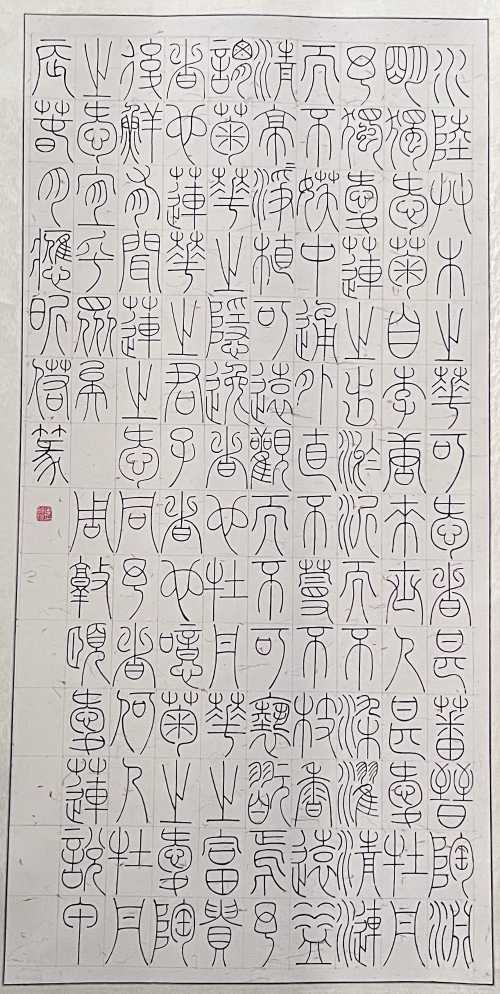 水陸艸木之華可愛者甚蕃晉陶淵
明獨愛菊自李唐來世人甚愛牡丹
予獨愛蓮之出淤泥而不染濯清漣
而不妖中通外直不蔓不枝香遠益
清亭=淨植可遠觀而不可褻翫焉予
謂菊華之隱逸者也牡丹華之富貴
者也蓮華之君子者也噫菊之愛陶
後鮮有聞蓮之愛同予者何人牡丹
之愛宜乎眾矣 周敦頤愛蓮說甲
辰春月應篆